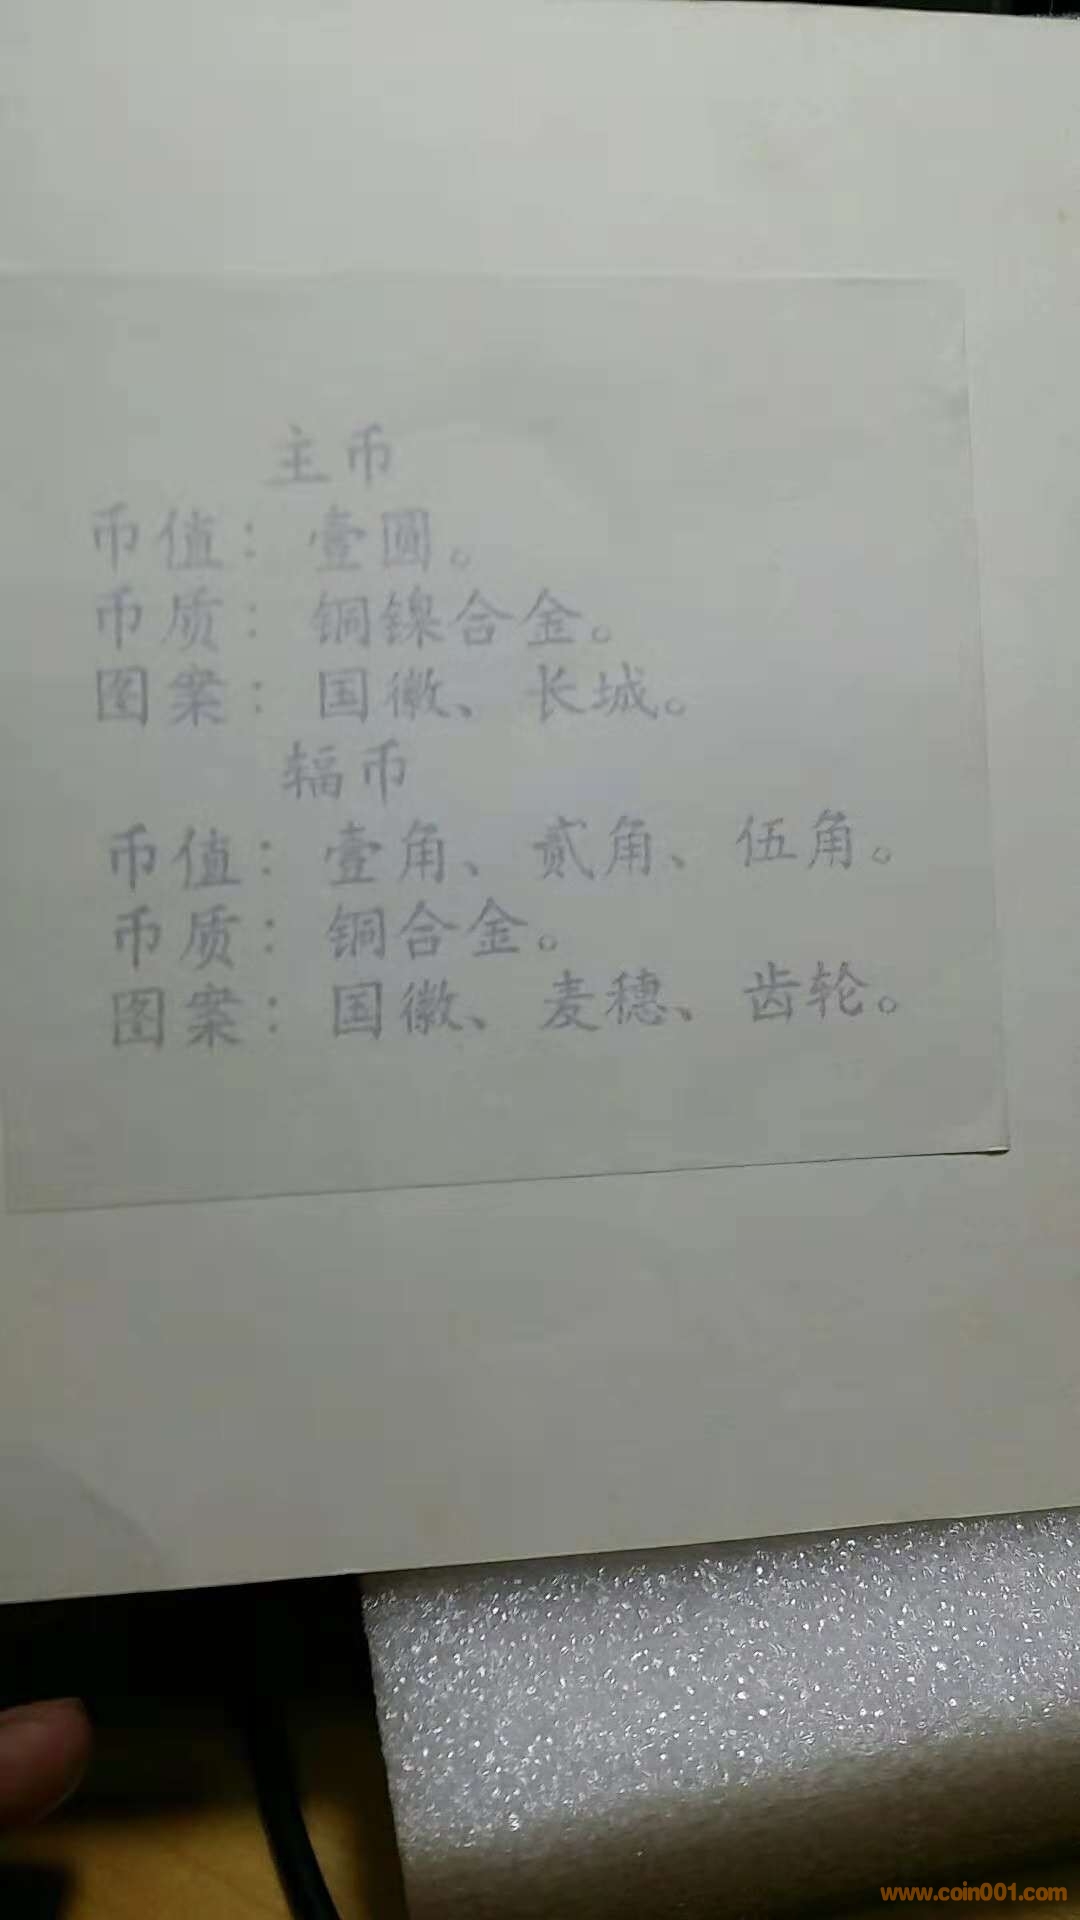 主币
币值：壹圆。
币质：铜镍合金。
图案：国徽、长城。
辐币
币值：壹角、贰角、伍角。
币质：铜合金。
图案：国徽、麦穗、齿轮。
www.coin001.com